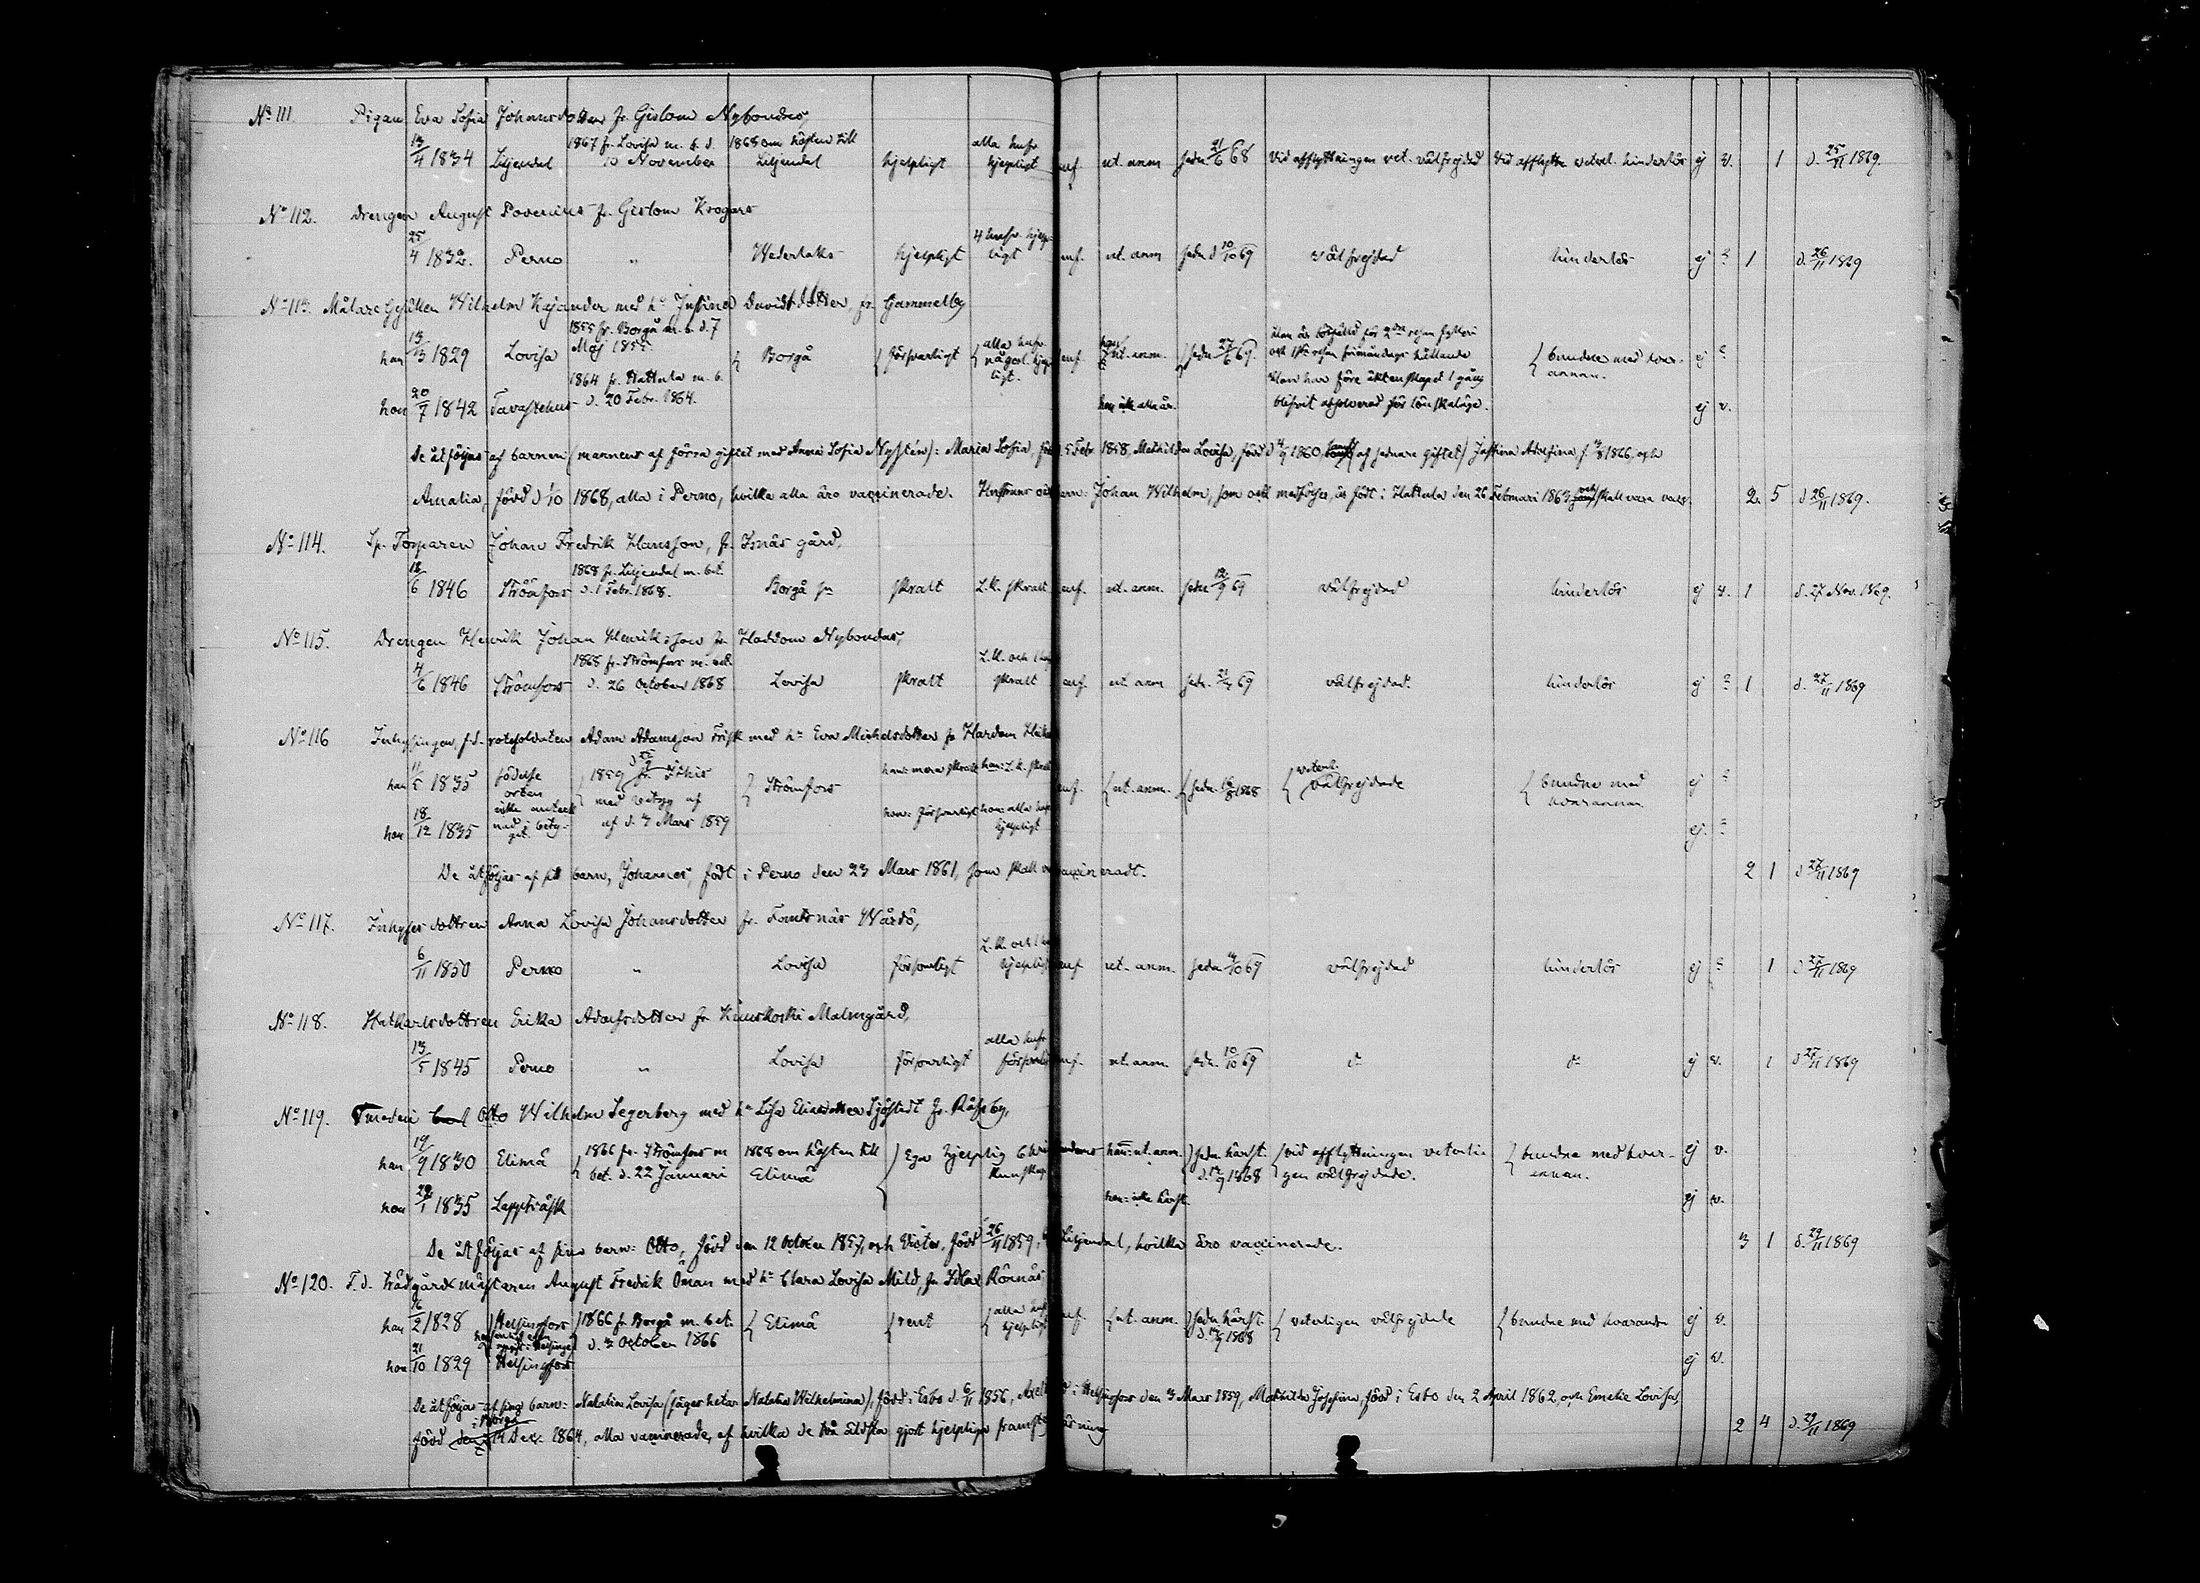 No 111. Pigan Eva Sofia Johansdotter fr. Gislom Nybondas,
13/4 1834 Liljendal 1867 fr. Lovisa m. b. d. 10 November 1868 om hösten till Liljendal hjelpligt alla hufv. hjelpligt nt. anm sedn. 21/6 68 Vid afflyttningen vet. välfrejdad Vid afflyttn vetrel. hinderlös ej v. 1 d. 25/11 1869.
No 112. Drengen August Povenius fr. Gislom Krogars
25/4 1832. Perno " Wederlaks hjelpligt 4 hufv. hjelpligt nt. anm sedn d 10/10 69 välfrejdad hinderlös ej 1 d. 26/11 1869
Målare Gesällen Wilhelm Kajander med h. Justina Davidsdotter, fr. Gammelby
han 13/13 1829 Lovisa 1855 fr. Borgå m. b. d. 7 Maj 1855. Borgå försvarligt alla hufv. någorl. hjelpligt. nt. anm. sedn 27/6 69. 2dra resan fylleri bundne med hvarannan. ej
och 1sta resan hållande
hon 20/7 1842 Tavastehus 1864 fr. Hattula m. b. d. 20 Febr. 1864. hon har före äktenskapet 1 gång blifvit absolverad för lönskaläge. ej v.
De åtföljas af barnen (mannens af förra giftet med Anna Sofia Nystén): Maria Sofia, född 5 Febr 1858, Mathilda Lovisa, född d 4/9 1860, (af sednare giftet) Justina Adolfina f. 1866, och
Amalia, född d 1/10 1868, alla i Perno, hvilka alla äro vaccinerade. Johan Wilhelm, som ock medföljer, är född i Hattula den 26 Februari 1863 och skall vara vacc. 2. 5 d 26/11 1869.
No 114. Sp. Torparen Johan Fredrik Hansson, fr. Isnäs gård,
18/6 1846 Strömfors 1868 fr. Liljendal m. bet. d. 1 Febr. 1868. Borgå sn skralt L. k. skralt nt. anm. sedn 12/9 69 välfrejdad hinderlös ej v. 1 d. 27 Nov. 1869.
No 115. Drengen Henrik Johan Henriksson fr. Haddom Nybondas,
4/6 1846 Strömfors 1868 fr. Strömfors m. bet. d. 26 October 1868 Lovisa skralt L. k. och skralt nt. anm sedn. 69 välfrejdad. hinderlös ej 1 d. 27/11 1869
No 116 Inhysingen, f.d. rotesoldaten Adam Adamsson Frisk med h. Eva Michelsdotter fr Hardom
han 11/5 1835 födelse orten icke antecknad i betyget. 1859 fr. Ithis med betyg af d. 3 Mars 1859 Strömfors han: mera skralt han: L. k. skralt nt. anm. sedn. 1868 veterl. välfrejdade bundne med hvarannan ej
hon 18/12 1835 hon: försvarligt hon: alla hufv hjelpligt ej.
De åtföljas af sitt barn, Johannes, född i Perno den 23 Mars 1861, som skall vara vaccineradt. 2 1 d 27/11 1869
No 117. Inhyses dottren Anna Lovisa Johansdotter fr. Tomtnäs Wårdö,
6/11 1850 Perno " Lovisa försvarligt L. k. och hjelpligt nt. anm. sedn 69 välfrejdad hinderlös ej 1 d 27/11 1869
No 118. Statkarlsdottren Erika Adolfsdotter fr. Kimskoski Malmgård,
13/5 1845 Perno " Lovisa försvarligt alla hufv försvarl. nt. anm. sedn. 10/10 69 do do ej v. 1 d 27/11 1869
No 119. Smeden Otto Wilhelm Segerberg med h. Lisa Eliasdotter Sjöstedt fr. Räfsby,
han 19/9 1830 Elimä 1866 fr. Strömfors m bet. d. 22 Januari 1868 om hösten till Elimä Ega hjelplig kunskap han: nt. anm. sedn. härst. d. 1868 vid afflyttningen veterligen välfrejdade. bundne med hvarannan. ej v.
hon 1835 Lappträsk ej v.
De åtföljas af sina barn: Otto, född den 12 October 1857, och Victor, född 26/11 1859, i Liljendal, hvilka äro vaccinerade. 3 1 d. 29/11 1869
No 120. F. d. trädgårdsmästaren August Fredrik Öman med h. Clara Lovisa Mild, fr Rönnäs
han 16/2 1828 Helsingfors 1866 fr. Borgå m. bet. d. 2 October 1866 Elimä rent alla hufv hjelpligt nt. anm. sedn härst. d. 1868 veterligen välfrejdade bundne med hvarandra ej v.
hon 21/10 1829 Helsingfors ej v.
De åtföljas af sina barn: Natalia Lovisa (säges heta Natalia Wilhelmina), född i Esbo d. 6/11 1856, Axel i Helsingfors den 3 Mars 1859, Mathilda Josefina, född i Esbo den 2 April 1862, och Emelie Lovisa,
född i Borgå 14 Dec. 1864, alla vaccinerade, af hvilka de två äldsta gjort hjelpliga framsteg 2 4 d. 29/11 1869